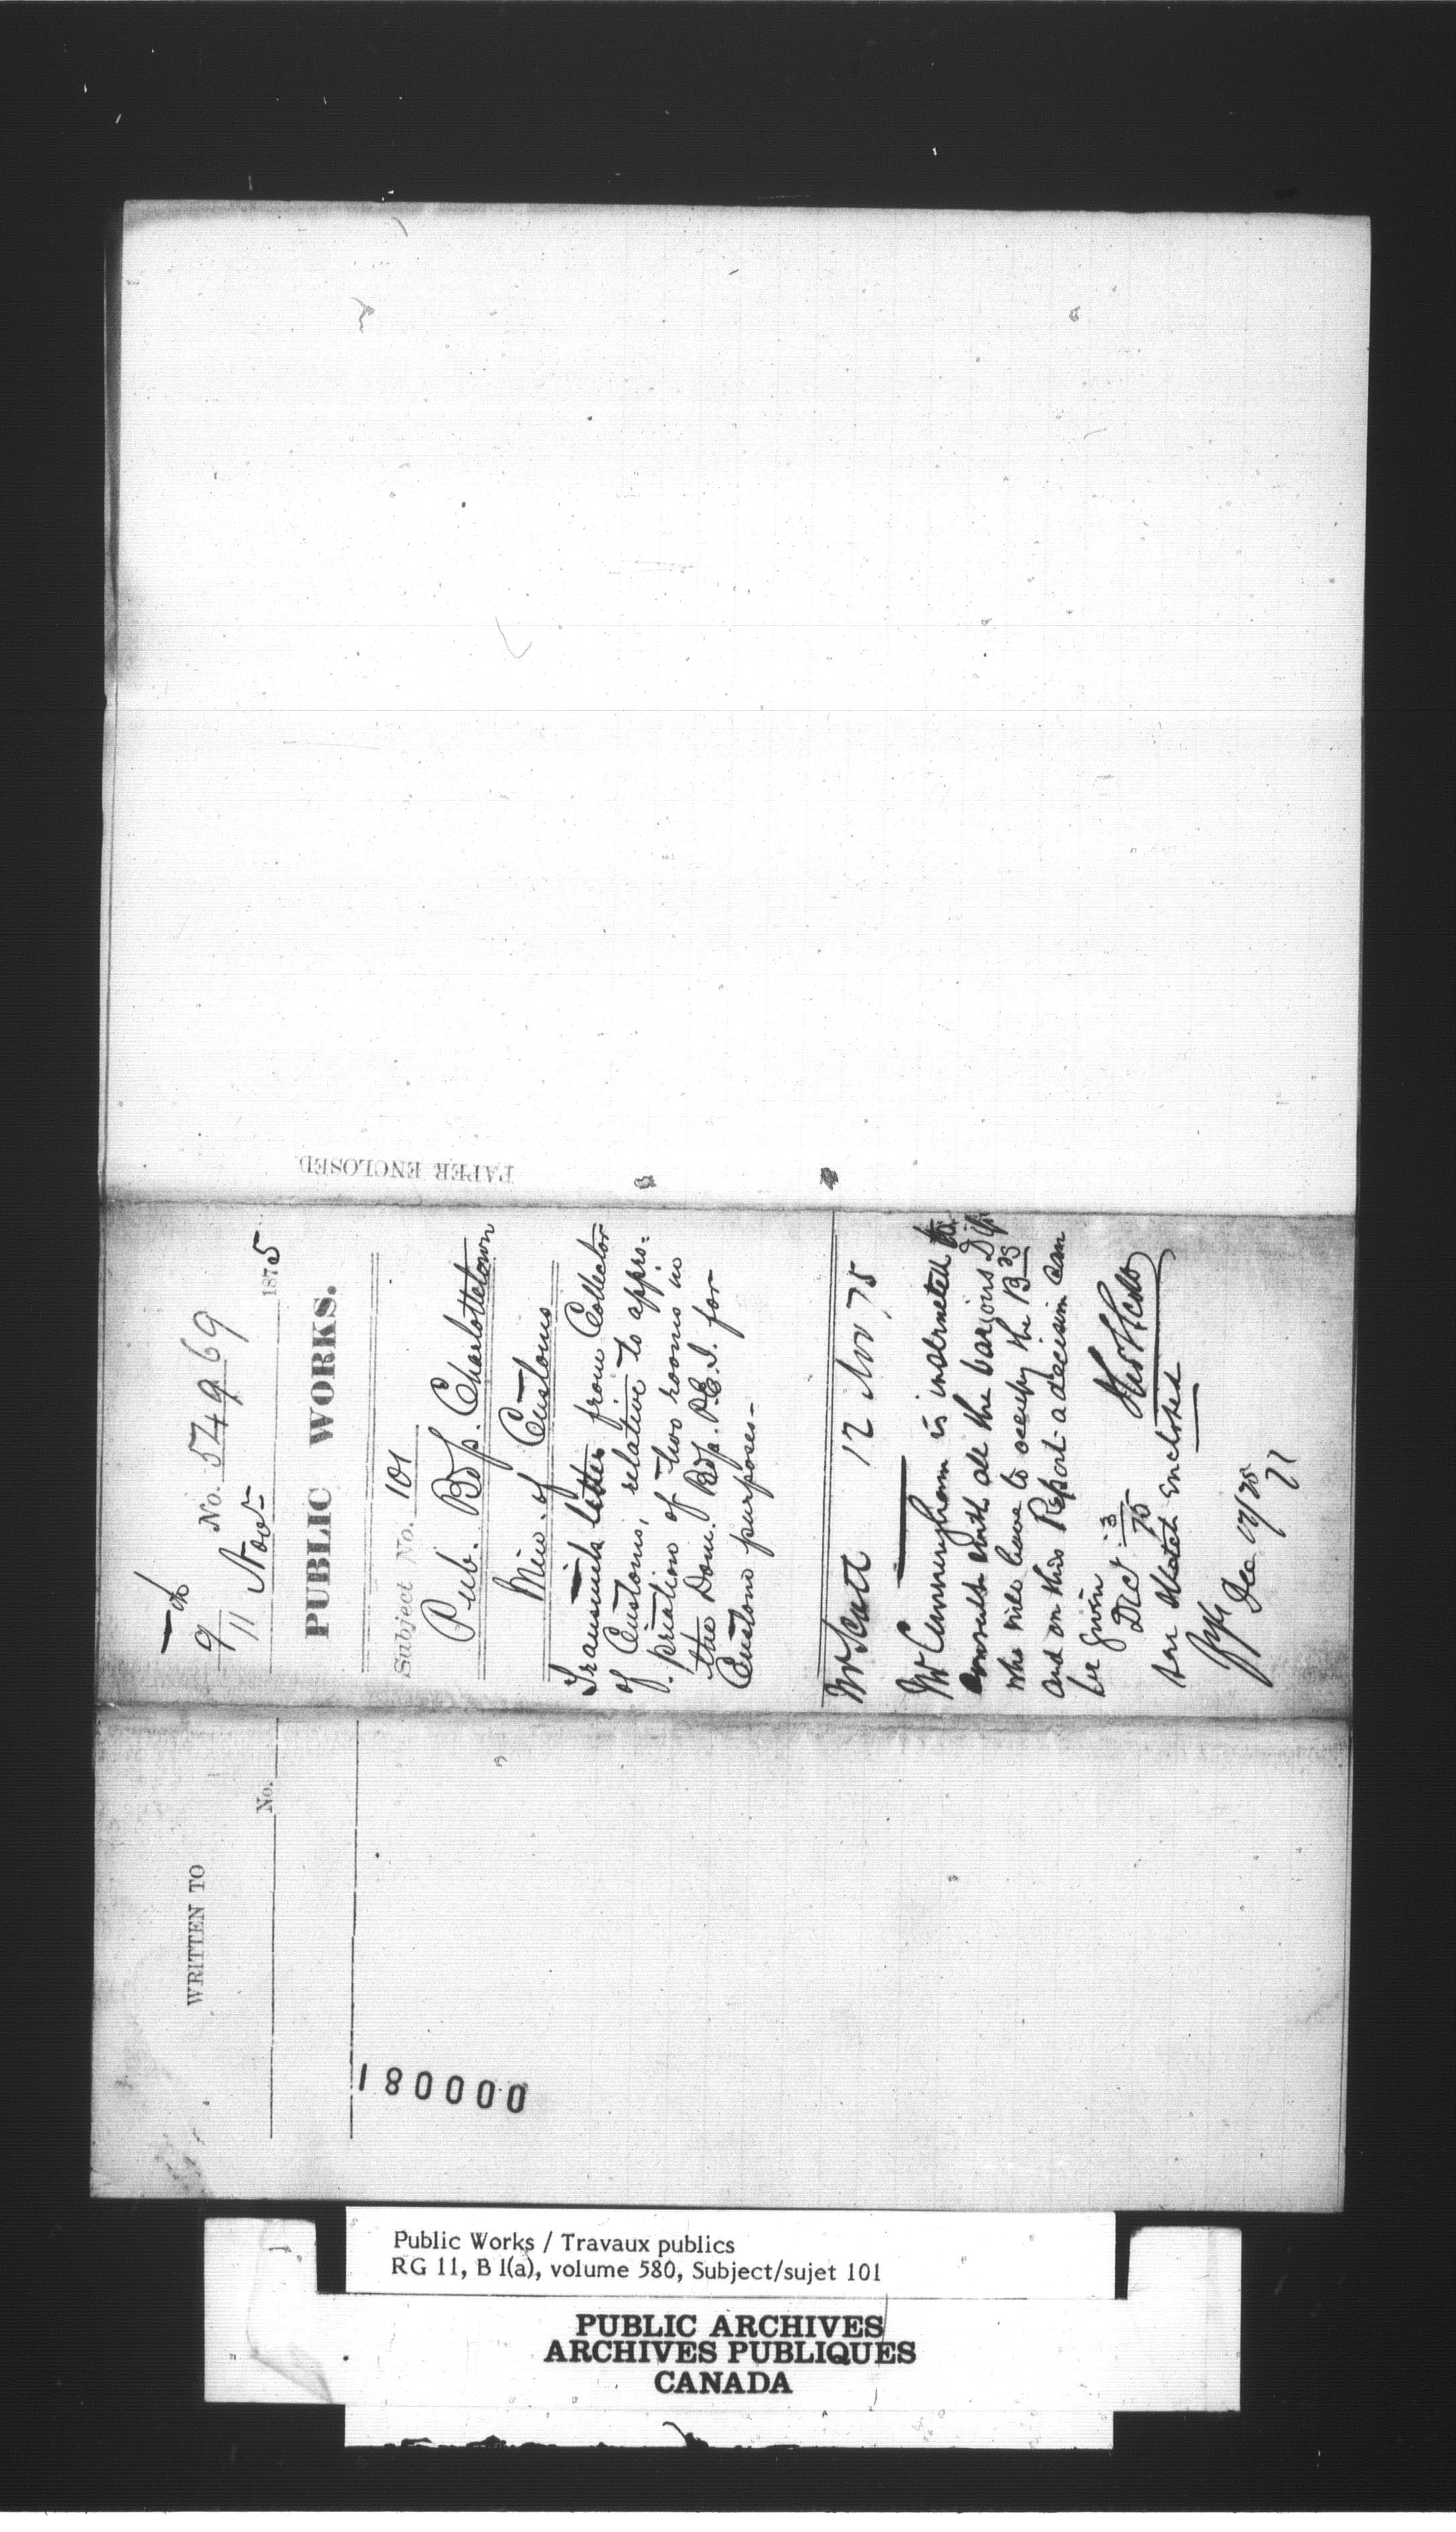 9 No. 54969
11 Nov 1875
PUBLIC WORKS.
Subject No. 101
Pub. Bds. Charlottetown
Min. of Customs
Transmits letter from Collector
of Customs, relative to appro-
-priation of two rooms in
the Dom. Bds. P.E.I. for
Custom purposes-
Mr Scott 12 Nov 75
Mr Cunningham is instructed to
consult with all the various
who will have to occupy the Bgs
and on this Report a decision can
be given
Dec 3
75
See Sketch enclosed
Dec 75
PAPER ENCLOSED
WRITTEN TO
No.
180000
Public Works / Travaux publics
RG 11, B 1(a), volume 580, Subject/sujet 101
PUBLIC ARCHIVES
ARCHIVES PUBLIQUES
CANADA